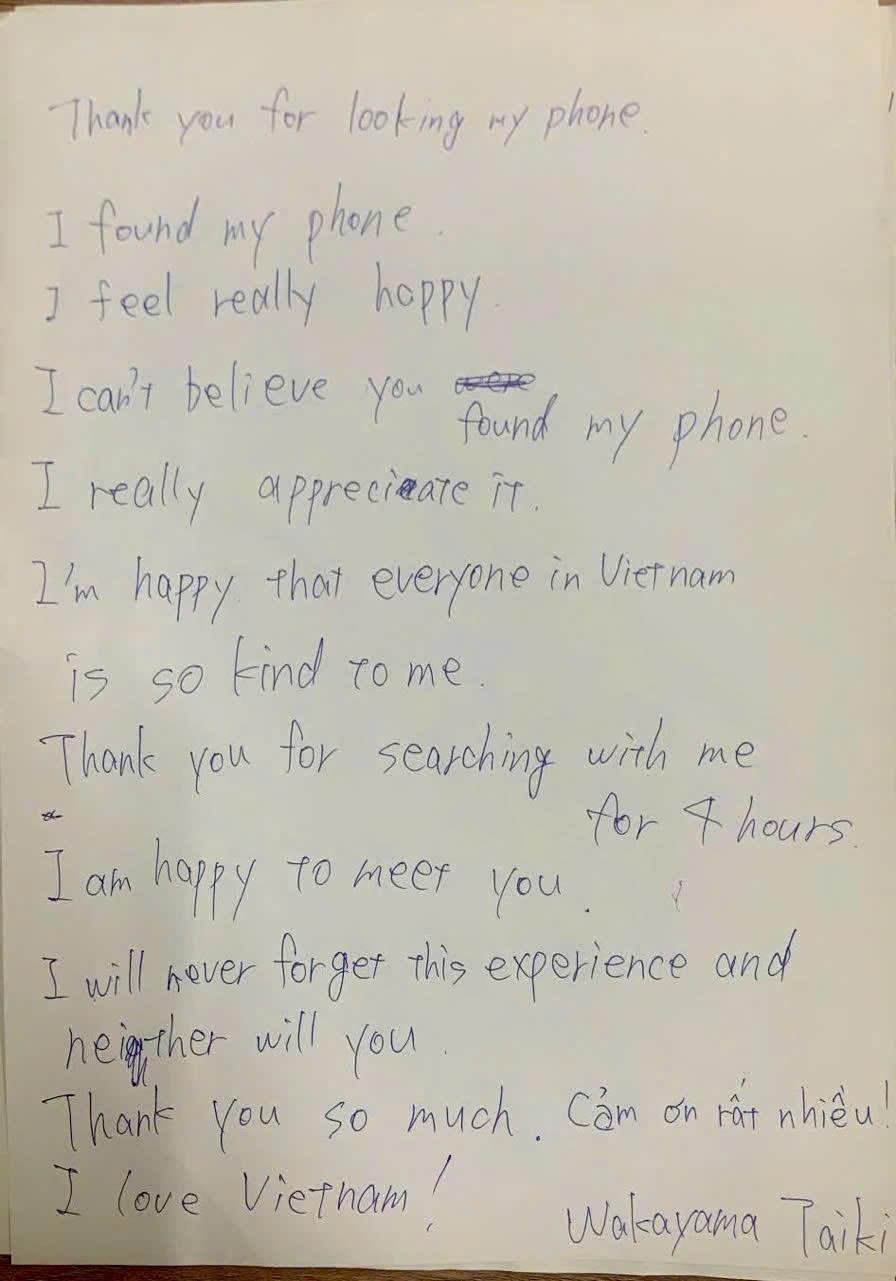 Thank you for looking my phone.
I found my phone.
I feel really happy.
I can't believe you
found my phone.
I really appreciate it.
I'm happy that everyone in Vietnam
is so kind to me.
Thank you for searching with me
for 4 hours.
I am happy to meet you.
I will never forget this experience and
neither will you.
Thank you so much. Cảm ơn rất nhiều!
I love Vietnam!
Wakayama Taiki